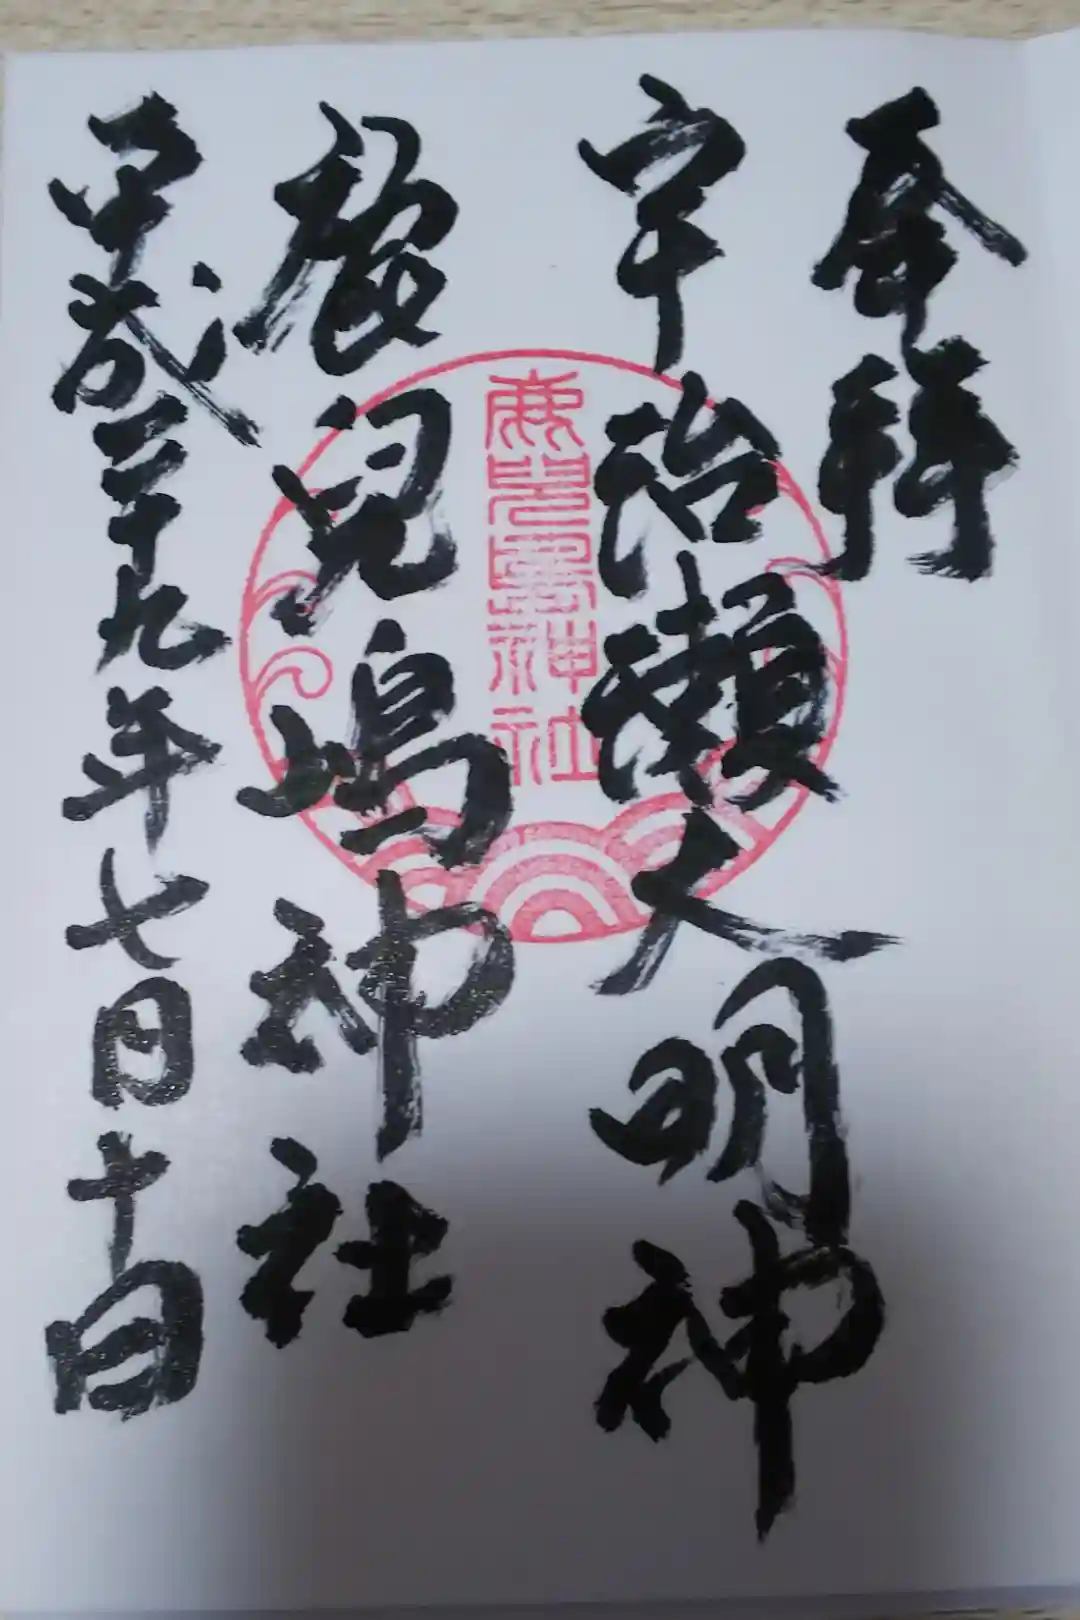 奉拝
宇治瀬大明神
鹿児嶋神社
鹿児島神社
平成二十九年七月十日